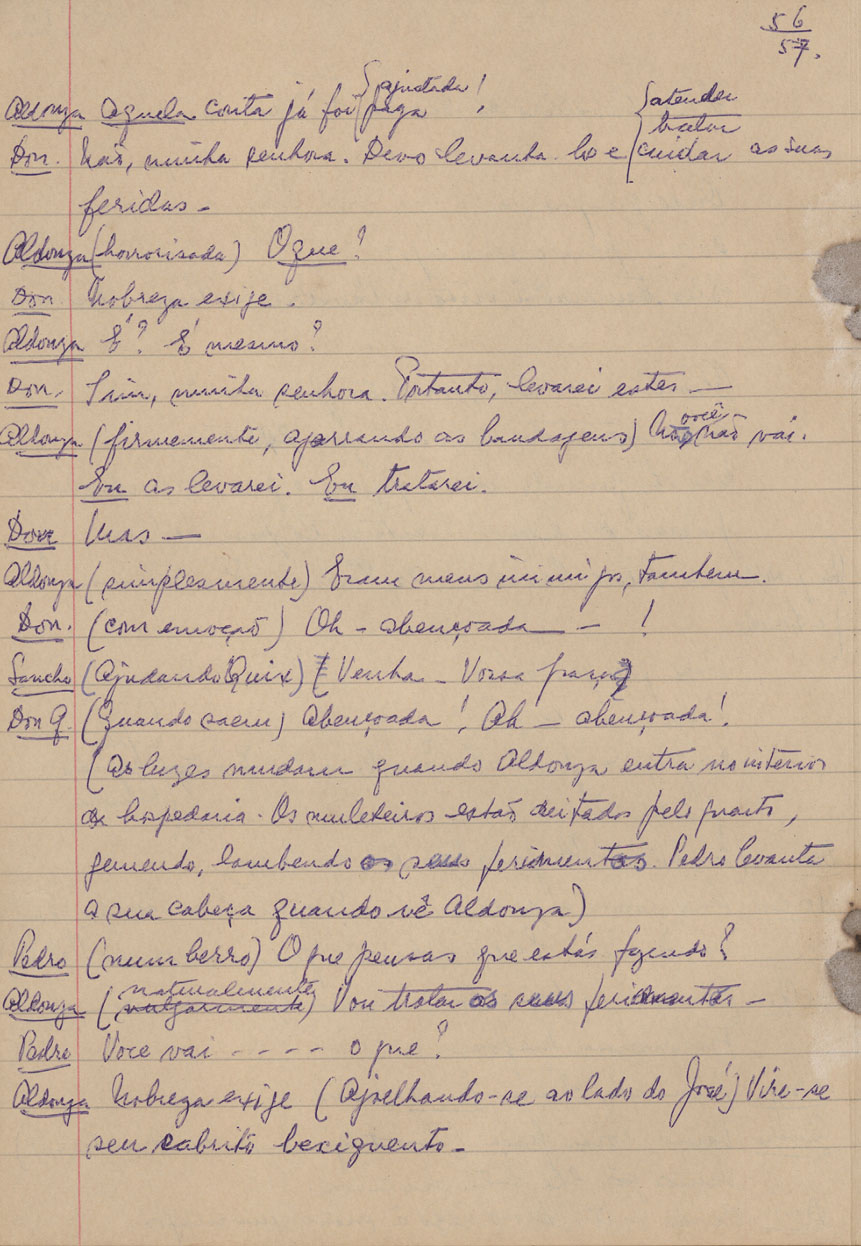 56
57.
{ajustada
Aldonza Aquela conta já foi {paga !
{atender
tratar
Don. Não, minha senhora. Devo levanta-los e {cuidar as suas
feridas -
Aldonza (horrorisada) O que?
Don Nobreza exije.
Aldonza É? É mesmo?
Don. Sim, minha senhora. Portanto, levarei estes —
você -
Aldonza (firmemente, agarrando as bandagens) Não, não vai.
Eu as levarei. Eu tratarei.
Don Mas —
Aldonza (simplesmente) Eram meus inimigos, tambem.
Don. (com emoção) Oh - abençoada — - !
Sancho (Ajudando Quix) (Venha - Vossa graça)
Don Q. (Quando saem) Abençoada! Ah - abençoada!
(As luzes mudam quando Aldonza entra no interior
da hospedaria. Os muleteiros estão deitados pelo quarto,
gemendo, lambendo os seus ferimentos. Pedro levanta
a sua cabeça quando vê Aldonza)
Pedro (num berro) O que pensas que estás fazendo?
naturalmente
Aldonza (vulgarmente) Vou tratar os seus ferimentos -
Pedro Voce vai - - - - - o que?
Aldonza Nobreza exije (Ajoelhando-se ao lado do José) Vire-se
seu cabrito bexiguento -